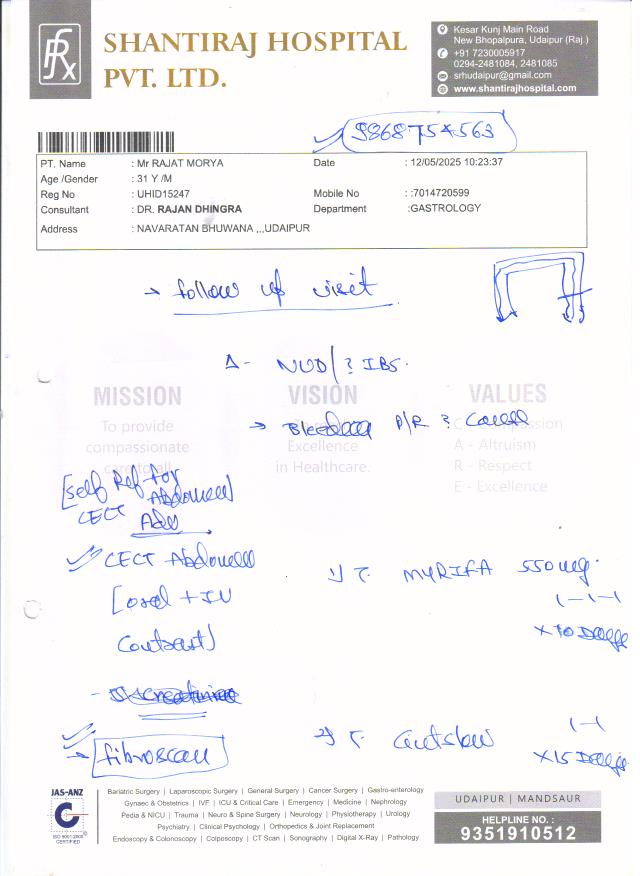 SHANTIRAJ HOSPITAL
PVT. LTD.
Kesar Kunj Main Road
New Bhopalpura, Udaipur (Raj.)
+91 7230005917
0294-2481084, 2481085
srhudaipur@gmail.com
www.shantirajhospital.com
9868754563
PT. Name : Mr RAJAT MORYA Date : 12/05/2025 10:23:37
Age /Gender : 31 Y /M
Reg No : UHID15247 Mobile No : :7014720599
Consultant : DR. RAJAN DHINGRA Department :GASTROLOGY
Address : NAVARATAN BHUWANA ,,,UDAIPUR
→ follow up visit
Δ - NUD/? IBS.
MISSION VISION VALUES
→ Bleeding P/R ? Cause
To provide
compassionate Excellence A - Altruism
in Healthcare. R - Respect
E - Excellence
[Self Ref for
CECT Abdomen]
Adv
CECT Abdomen
[oral + IV
Contrast]
1) T. MYRIFA 550 mg.
1-1-1
x 10 Days
- S. creatinine
→ fibroscan
2) T. 1-1
x 15 Days
JAS-ANZ
ISO 9001:2008
CERTIFIED
Bariatric Surgery | Laparoscopic Surgery | General Surgery | Cancer Surgery | Gastro-enterology
Gynaec & Obstetrics | IVF | ICU & Critical Care | Emergency | Medicine | Nephrology
Pedia & NICU | Trauma | Neuro & Spine Surgery | Neurology | Physiotherapy | Urology
Psychiatry | Clinical Psychology | Orthopedics & Joint Replacement
Endoscopy & Colonoscopy | Colposcopy | CT Scan | Sonography | Digital X-Ray | Pathology
UDAIPUR | MANDSAUR
HELPLINE NO. :
9351910512